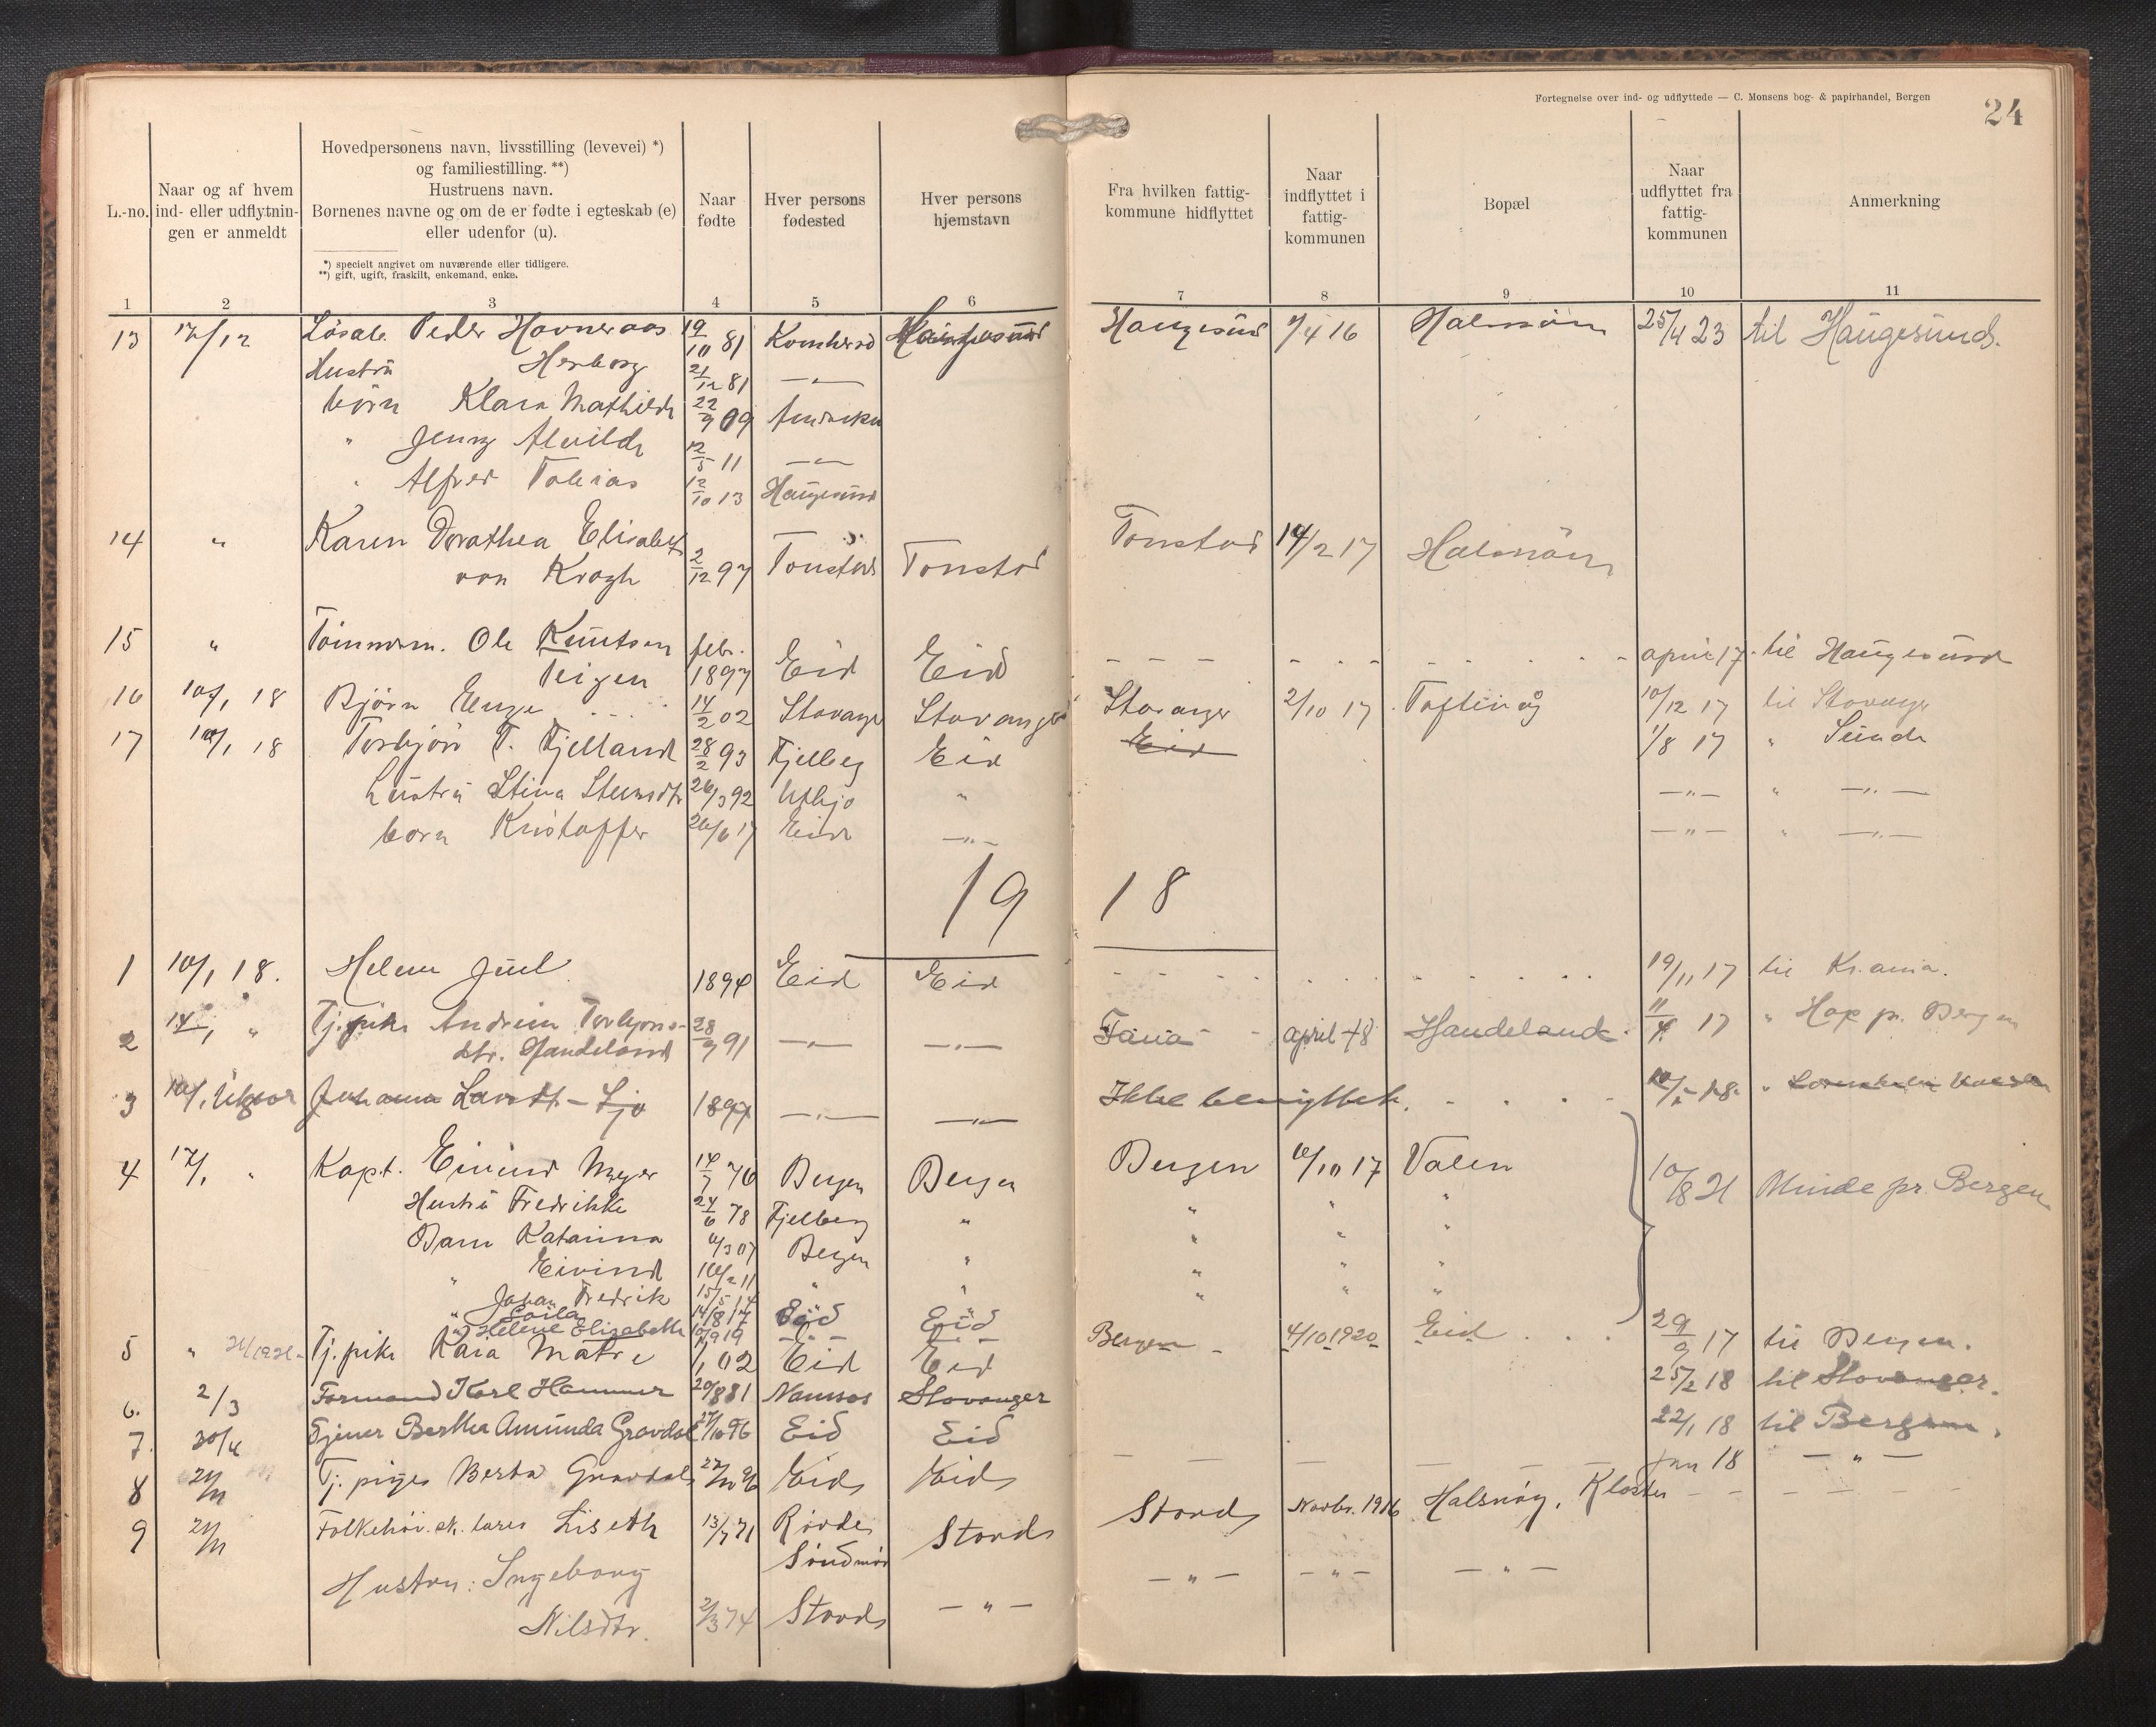 Fortegnelse over ind- og udflyttede — C. Monsens bog- & papirhandel, Bergen
24
L.-no.
Naar og af hvem
ind- eller udflytnin-
gen er anmeldt
Hovedpersonens navn, livsstilling (levevei) *)
og familiestilling. **)
Hustruens navn.
Børnenes navne og om de er fødte i egteskab (e)
eller udenfor (u).
*) specielt angivet om nuværende eller tidligere.
**) gift, ugift, fraskilt, enkemand, enke.
Naar
fødte
Hver persons
fødested
Hver persons
hjemstavn
Fra hvilken fattig-
kommune hidflyttet
Naar
indflyttet i
fattig-
kommunen
Bopæl
Naar
udflyttet fra
fattig-
kommunen
Anmerkning
1 2 3 4 5 6 7 8 9 10 11
13 17/12 Peder Hovneraas 19/10 81 Haugesund 7/4 16 Halsnöen 25/4 23 til Haugesund.
Hustrü Herborg 21/12 81 — " —
börn Klara Mathilde 22/9 09
" Jenny Alvilde 12/5 11 — " —
" Alfred Tobias 12/10 13 Haugesund
14 " Karen Dorathea Elisabeth Tonstad 14/2 17 Halsnöen
von Krogh 2/12 97 Tonstad Tonstad
15 " Tömmerm. Ole Knutsen febr. Eid Eid april 17 til Haugesund
Teigen 1897
16 10/1 18 Björn Enge 14/2 02 Stavanger Stavanger Stavanger 2/10 17 Toftevåg 10/12 17 til Stavanger
17 10/1 18 Torbjörn T. Fjelland 28/2 93 Fjelberg Eid Eid 1/8 17 " Sunde
hustrü Stina 26/3 92 " — " — " — " —
barn Kristoffer 26/6 17 Eid — " — — " — " — " —
19 18
1 10/1 18. Helene Juul 1894 Eid Eid 19/11 17 til Kr.ania.
2 14/1 " Tj.pike Andrea Torbjørns- 28/9 91 — " — — " — Fana april 18 Handeland 17 " Hop pr. Bergen
dtr. Handeland
3 10/1 Utgaar Johanna Larsdt. - Ljo 1897 — " — — " — Ikke benyttet.
4 17/1 " Kapt. Eivind Meyer 14/7 76 Bergen Bergen Bergen 10/10 17 Valen 10/8 21 Minde pr. Bergen
Hustrü Fredrikke 24/6 78 Fjelberg " " " "
Barn Katarina 6/3 07 Bergen " " " "
" Eivind 16/2 11 " " " " "
Johan Fredrik 15/5 14 " " " "
" Laila 14/8 17 Eid Eid
" Helene Elisabeth — " — — " — Bergen 4/10 1920 Eid
5 " Tj. pike Kara Matre 02 Eid Eid 29/9 17 til Bergen.
6. 2/3 Formand Karl Hammer 20/8 81 Namsos Stavanger 25/2 18 til Stavanger.
7. 30/4 Tjener Bertha Amunda Gravdal 27/10 96 Eid Eid 22/1 18 til Bergen.
8 21/11 Tj. piges Berta Gravdal 27/10 96 Eid Eid — — — Jan 18 — " —
9 21/11 Folkehöi.sk. lærer Liseth 13/7 71 Rovde Stord Stord Novbr. 1916 Halsnøy, Kloster
Söndmör
Hustru: Ingeborg — " — — " — — " —
Nilsdtr. 2/3 74 Stord — " —